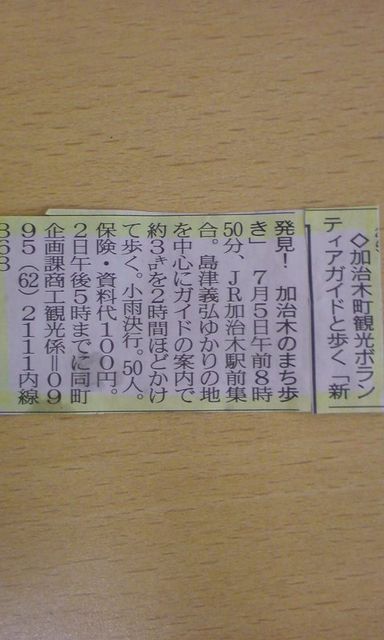 ◇加治木町観光ボラン
ティアガイドと歩く「新
発見！　加治木のまち歩
き」　７月５日午前８時
50分、ＪＲ加治木駅前集
合。島津義弘ゆかりの地
を中心にガイドの案内で
約３㌔を２時間ほどかけ
て歩く。小雨決行。50人。
保険・資料代１００円。
２日午後５時までに同町
企画課商工観光係＝０９
９５（62）２１１１内線